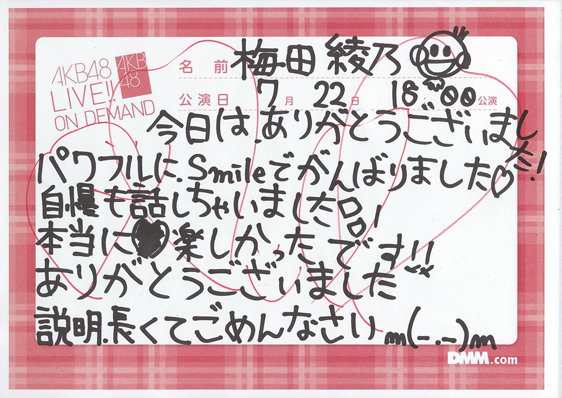 AKB48
LIVE!!
ON DEMAND
AKB
48
名 前 梅田 綾乃
公演日 7月 22日 18:00公演
今日は、ありがとうございました!
パワフルに、Smileでがんばりました♡
自慢も話しちゃいました
本当に♥楽しかったです!!
ありがとうございました
説明、長くてごめんなさい m(-.-)m
DMM.com